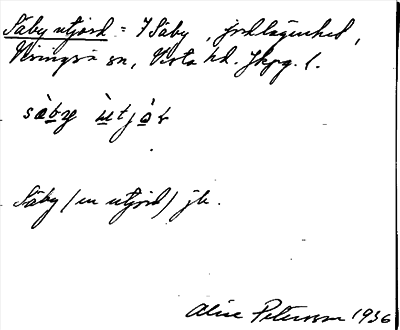 Säby utjord = 7 Säby, jordlägenhet,
Visingsö sn, Vista hd. Jkpg. l.
sàby ùtjor
Säby (en utjord) jb.
Aline Petersson 1936